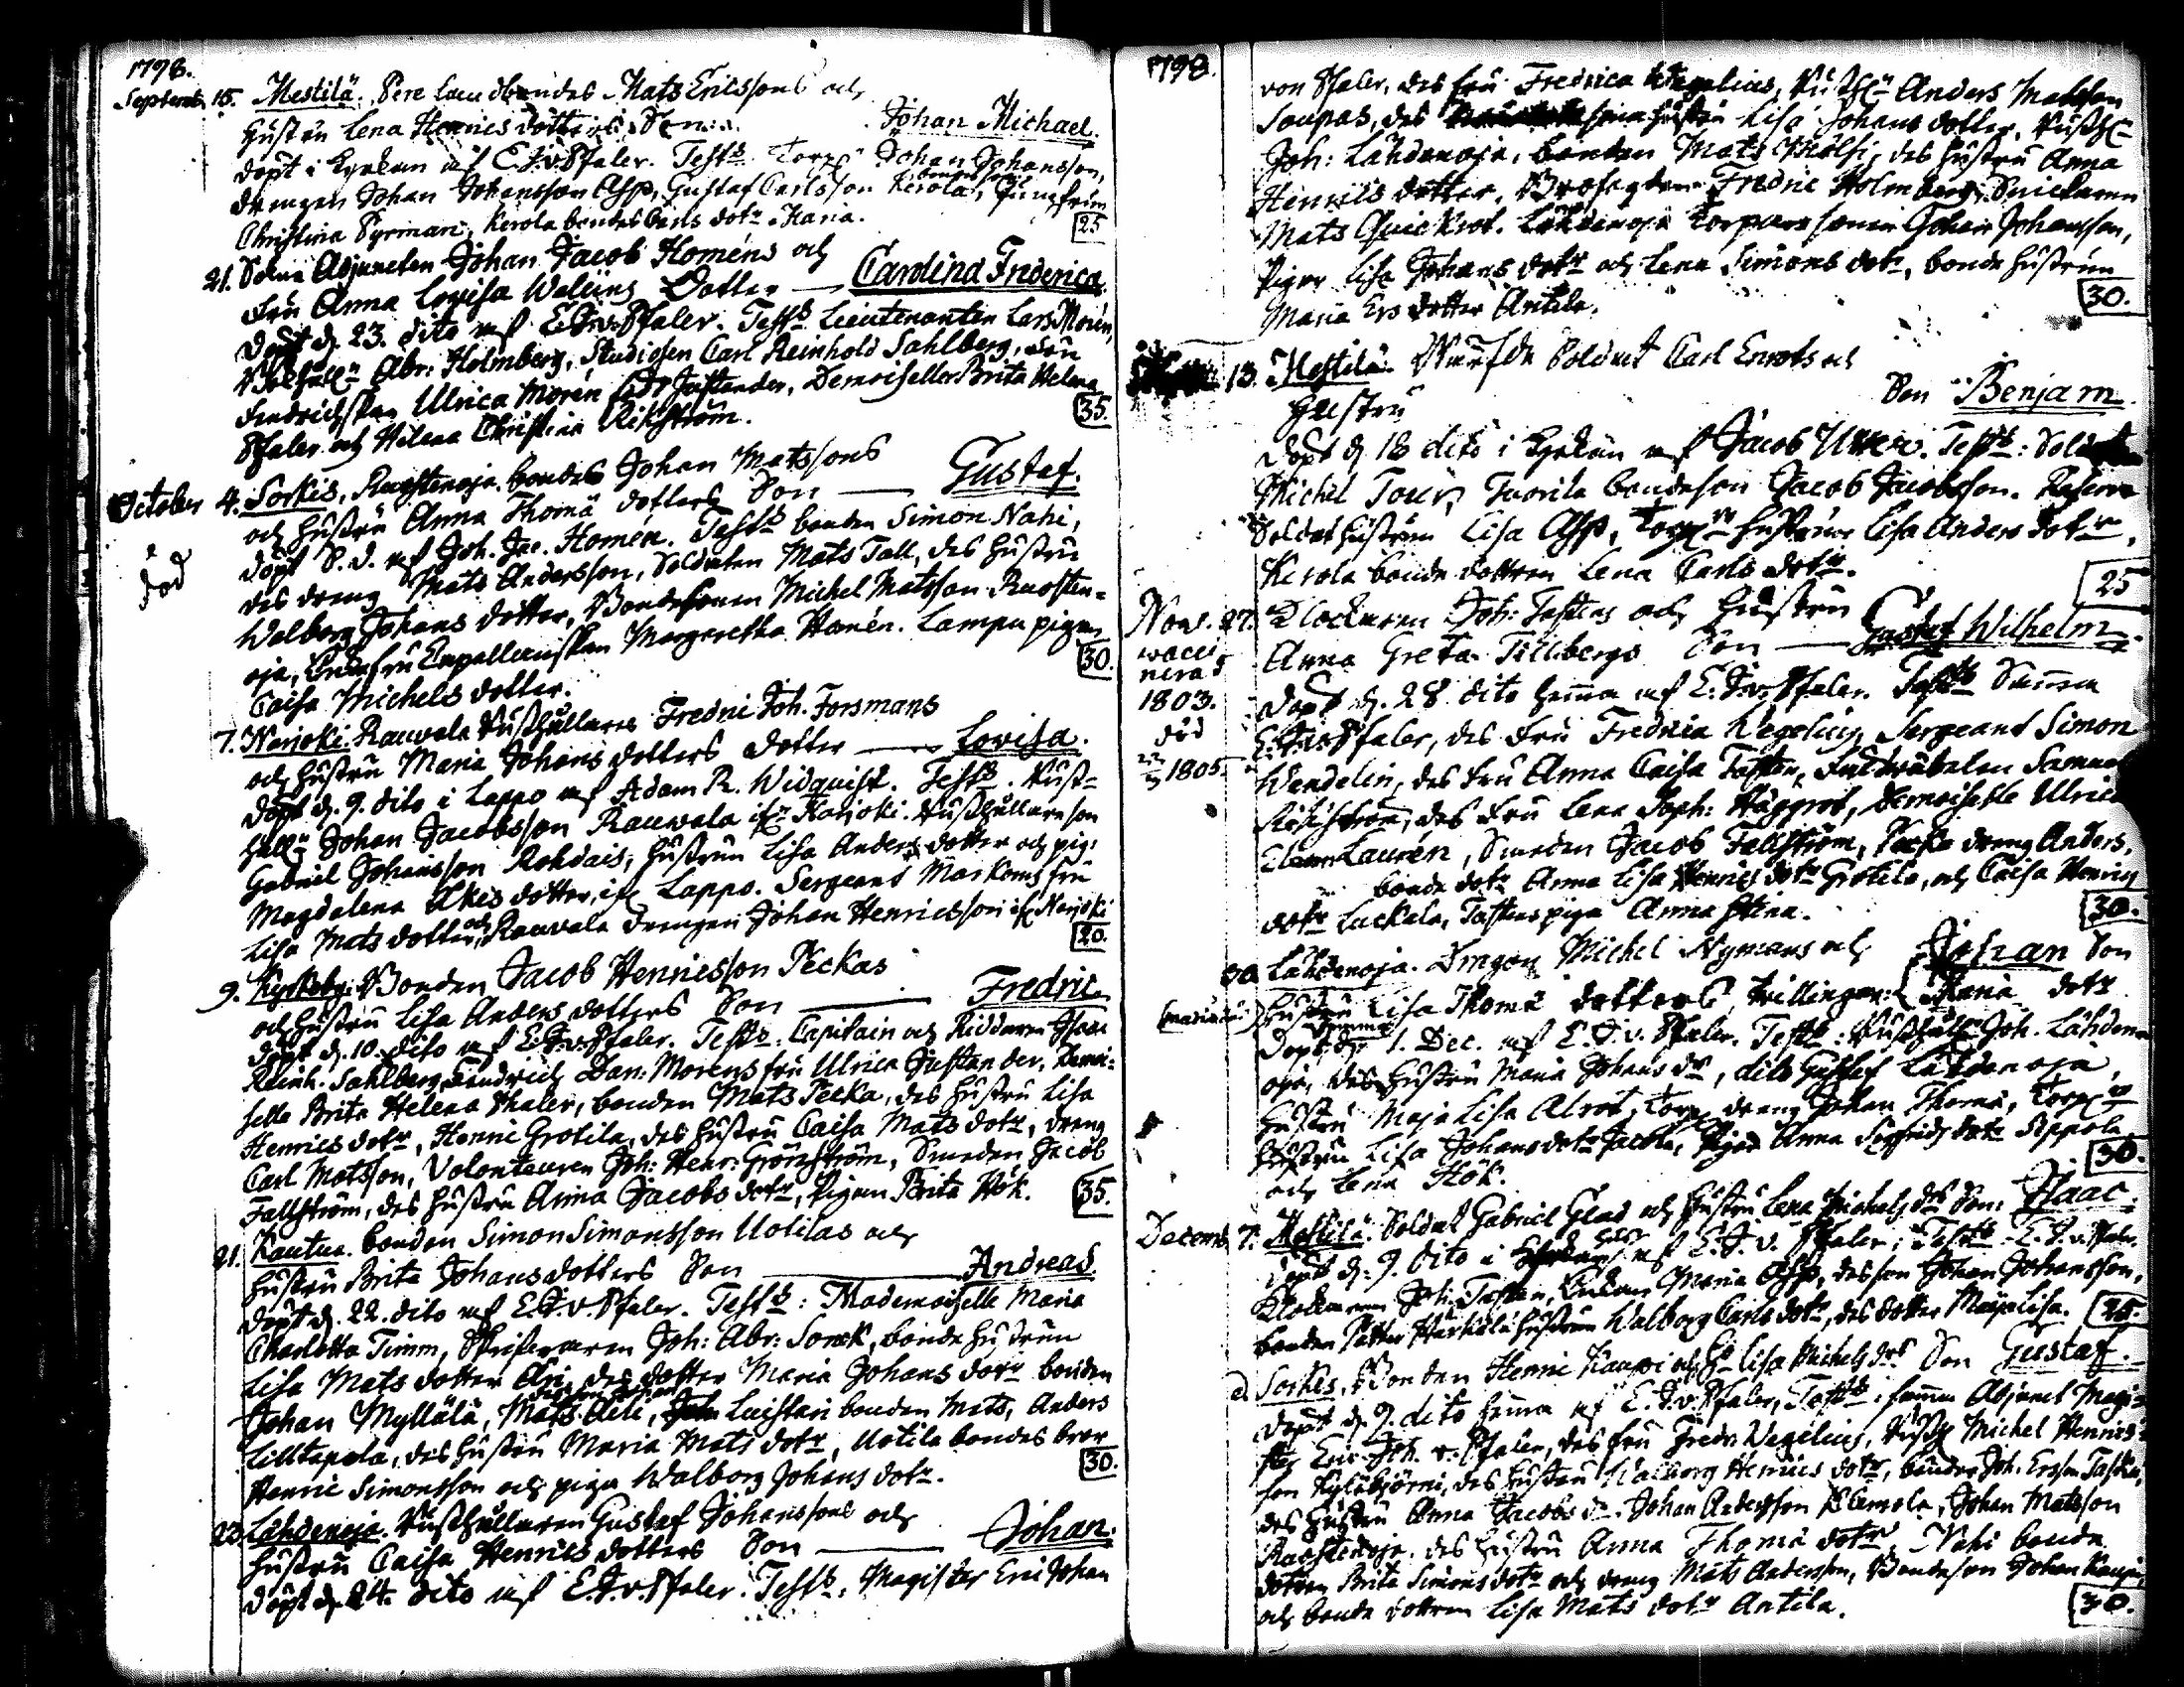 1798.
Septemb. 15. Mestilä. Pere Landbondes Mats Erikssons och
Hustru Lena Henrics dotters Son Johan Michael.
döpt i Kyrkan af E.J.v.Pfaler. Test: Torp: Johan Johansson,
drengen Johan Johansson Asp, Gustaf Carlsson Kerola, Jungfrun
Christina Pyrman, Kerola bondes Carls dotr Maria.
25
21. Socne Adjuncten Johan Jacob Homéns och
Fru Anna Lovisa Walliins Dotter — Carolina Friderica.
Döpt d. 23. dito af E.J.v.Pfaler. Test: Lieutenanten Lars Morén,
Abr: Holmberg, Studiosen Carl Reinhold Sahlberg, Fru
Fendrichskan Ulrica Morén född Justander, Demoiseller Brita Helena
Pfaler och Helena Christina Rikström.
35.
October 4. Sorkis, Ruostenoja bondes Johan Matssons
och hustru Anna Thomä dotters Son — Gustaf.
död
döpt S.d. af Joh. Jac. Homén. Test: bonden Simon Nahi,
des dreng Mats Andersson, Soldaten Mats Tall, des hustru
Walborg Johans dotter, Bondesonen Michel Matsson Ruosten-
oja, Capellanskan Margaretha Homén. Lampu pigan
Caisa Michels dotter.
30.
7. Narjoki. Rauvala Rusthållares Fredric Joh. Forsmans
och hustru Maria Johans dotters dotter — Lovisa.
döpt d. 9. dito i Lappo af Adam R. Widquist. Test: Rust-
håll: Johan Jacobsson Rauwala ifr. Karjoki. Rusthållareson
Gabriel Johansson Rohdais, hustrun Lisa Anders dotter och pig:
Magdalena Åkes dotter, ifr. Lappo. Sergeant Markoms fru
Lisa Mats dotter och Rauvala drengen Johan Henricsson ifr. Narjoki
20.
9. Kyrkoby. Bonden Jacob Henricsson Peckas
och hustru Lisa Anders dotters Son — Fredric
döpt d. 10. dito af E.J.v.Pfaler. Test: Capitain och Riddaren Isaac
Reinh. Sahlberg, Fendrich Dan: Moréns fru Ulrica Justander, Demoi-
selle Brita Helena Pfaler, bonden Mats Pecka, des hustru Lisa
Henrics dotr, Henric Grotila, des hustru Caisa Mats dotr, dreng
Carl Matsson, Volonteuren Joh: Henr: Grönström, Smeden Jacob
Fallström, des hustru Anna Jacobs dotr, Pigan Brita Hök.
35.
21. Kautua. bonden Simon Simonsson Uotilas och
hustru Brita Johans dotters Son — Andreas
döpt d. 22. dito af E.J.v.Pfaler. Test: Mademoiselle Maria
Charlotta Timm, Joh: Abr: Sonck, bonde hustrun
Lisa Mats dotter Ari, des dotter Maria Johans dotr bonden
Johan Myllälä, Mats Aeli, Luistari bonden Mats, Anders
Lilltapola, des hustru Maria Mats dotr, Uotila bondes bror
Henric Simonsson och piga Walborg Johans dotr.
30.
23. Lähdenoja. Rusthållaren Gustaf Johanssons och
hustru Caisa Henrics dotters Son — Johan.
döpt d. 24. dito af E.J.v.Pfaler. Test: Magister Eric Johan
1798.
von Pfaler, des fru Fredrica Wegelius, Rusth: Anders Matsson
Soupas, des hustru Lisa Johans dotter, Rusth:
Joh: Lähdenoja, bonden Mats Mälsi, des hustru Anna
Henrics dotter, Fredric Holmberg, Snickaren
Mats Quickrot. Lähdenoja Torparesonen Johan Johansson,
Pigor Lisa Johans dotr och Lena Simons dotr, bonde hustrun
Maria Ers dotter Antila.
30.
13. Mestilä. Soldat Carl Enrots och
Hustru Son Benjam
döpt d. 18 dito i Kyrkan af Jacob Uner. Test: Soldaten
Michel Tour, Tuorila bondeson Jacob Jacobsson. Reserve
Soldat hustrun Lisa Asp, Torp: hustrun Lisa Anders dotr,
Kerola bonde dottren Lena Carls dotr.
25
Nov. 27. Klockaren Joh: Tastens och hustru
vacci
nerad
1803.
död
1805.
Anna Greta Tillbergs Son — Gustaf Wilhelm
döpt d. 28 dito hemma af E.J.v.Pfaler. Test: Samma
E.J.v.Pfaler, des Fru Fredrica Wegelius, Sergeant Simon
Wendelin, des fru Anna Caisa Tasten, Samuel
Rikström, des Fru Lena Soph: Häggrot, Demoiselle Ulrica
Lauren, Smeden Jacob Fallström, Pecka dreng Anders,
bonde dotr Anna Lisa Henrics dotr Grotila, och Caisa Henrics
dotr Luckala, Tastens piga Anna Stina.
30.
30. Lähdenoja. Dragon Michel Nymans och Johan Son
hustru Lisa Thomä dotters Trillingar: Maria dotr
döpt d. hemma 1. Dec. af E.J.v.Pfaler. Test: Rusthåll: Joh. Lähden-
oja, des hustru Maria Johans dr, dito Gustaf Lähdenoja,
Hustru Maja Lisa Alrot, Torp: dreng Johan Thomä, Torp:
hustru Lisa Johans dotr Jacola, Pigor Anna Sigfrids dotr Seppola
och Lena Hök.
30.
Decemb. 7. Mestilä. Soldat Gabriel Glad och hustru Lena Michels drs Son: Isaac.
döpt d. 9. dito i af E.J.v.Pfaler; Test: E.J.v.Pfaler.
Klockaren Joh: Tasten, Enkan Maria Asp, des son Johan Johansson,
bonden Petter hustrun Walborg Carls dotr, des dotter Maja Lisa.
25.
d. Sorkis, Bonden Henric Kauppi och h: Lisa Michels drs Son Gustaf.
döpt d. 9. dito hemma af E.J.v.Pfaler, Test: samma Adjunct Magi-
ster Eric Joh. v. Pfaler, des fru Fredr: Wegelius, Rusth: Michel Henrics-
son Kyläbjörni, des hustru Walborg Henrics dotr, bonden Joh. Ersson
des hustru Anna Jacobs dr. Johan Andersson Klemola, Johan Matsson
Ruostenoja, des hustru Anna Thomä dotr, Nahi bonde
dottren Brita Simons dotr och dreng Mats Andersson, Bondeson Johan Kauppi,
och bonde dottren Lisa Mats dotr Antila.
30.